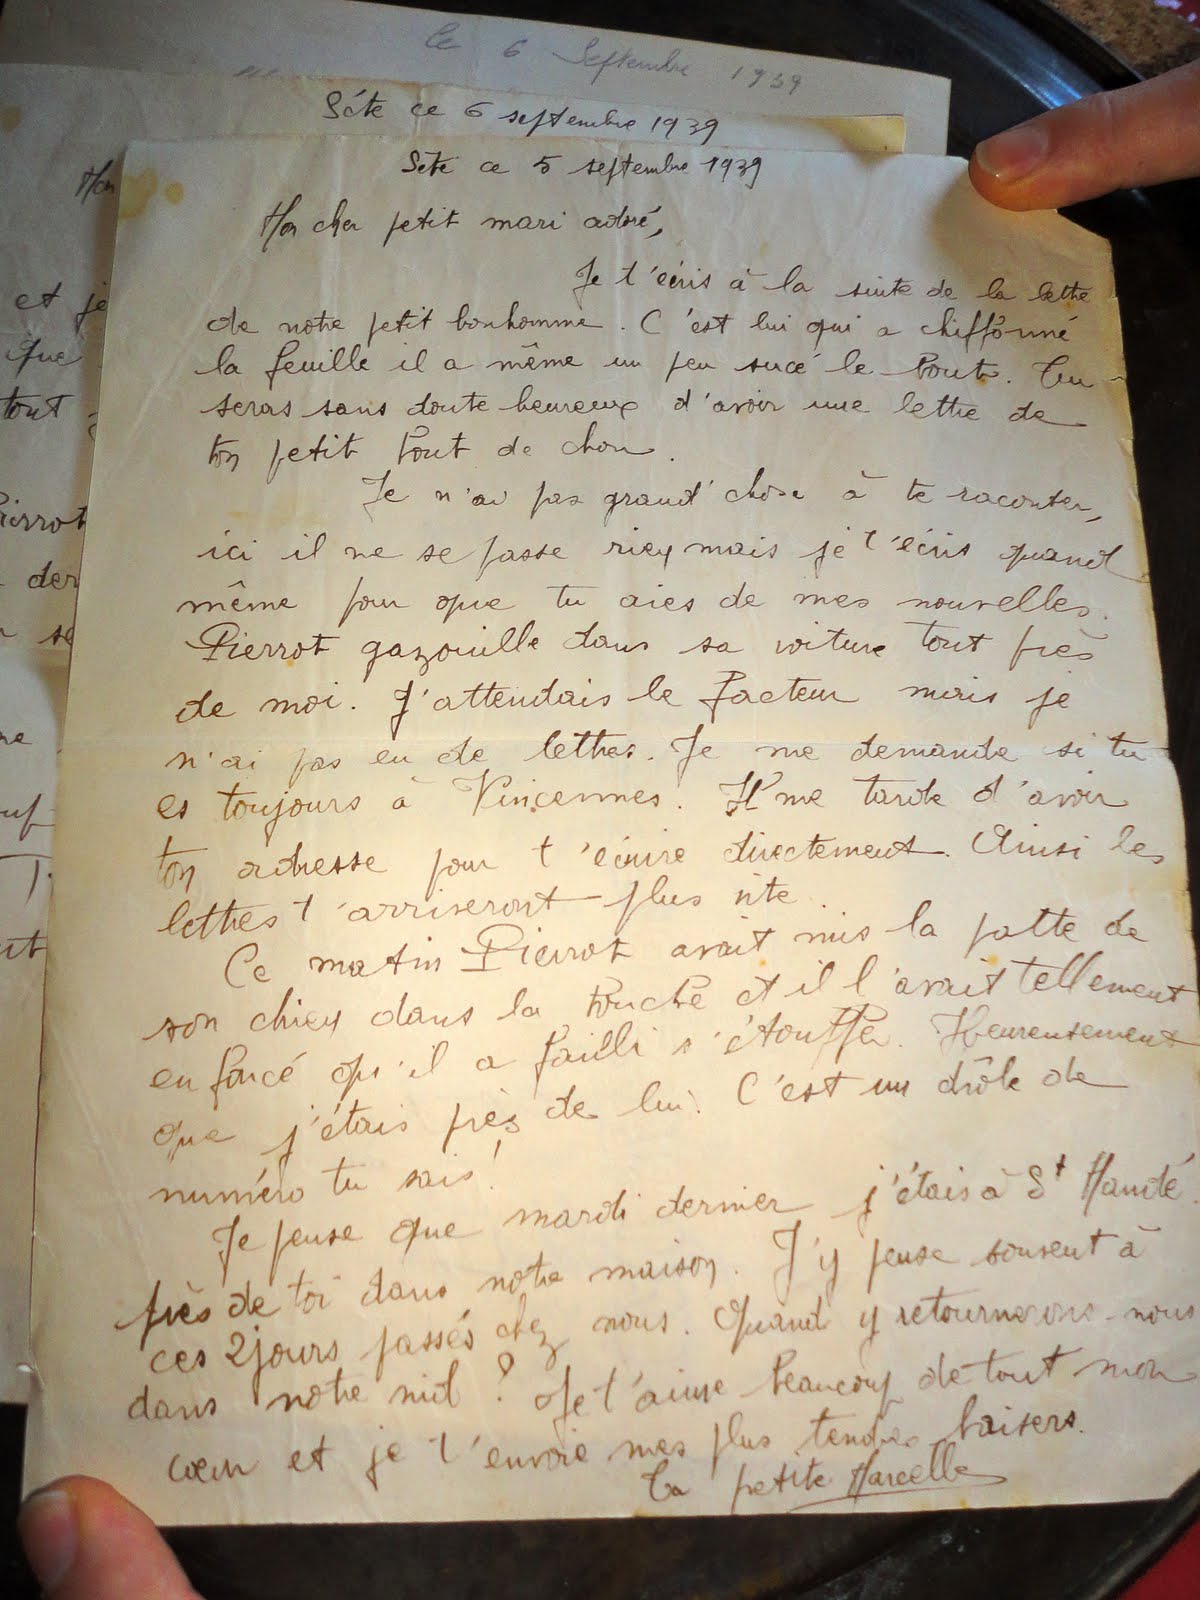 Ce 6 Septembre 1939
Sète ce 6 septembre 1939
Mon
et je
que
tout
Pierrot
der
se
Sète ce 5 septembre 1939
Mon cher petit mari adoré,
Je t'écris à la suite de la lettre
de notre petit bonhomme. C'est lui qui a chiffonné
la feuille il a même un peu sucé le bout. Tu
seras sans doute heureux d'avoir une lettre de
ton petit bout de chou.
Je n'ai pas grand'chose à te raconter,
ici il ne se passe rien mais je t'écris quand
même pour que tu aies de mes nouvelles.
Pierrot gazouille dans sa voiture tout près
de moi. J'attendais le facteur mais je
n'ai pas eu de lettres. Je me demande si tu
es toujours à Vincennes. Il me tarde d'avoir
ton adresse pour t'écrire directement. Ainsi les
lettres t'arriveront plus vite.
Ce matin Pierrot avait mis la patte de
son chien dans la bouche et il l'avait tellement
enfoncé qu'il a failli s'étouffer. Heureusement
que j'étais près de lui. C'est un drôle de
numéro tu sais!
Je pense que mardi dernier j'étais à St Mandé
près de toi dans notre maison. J'y pense souvent à
ces 2 jours passés chez nous. Quand y retournerons-nous
dans notre nid? Je t'aime beaucoup de tout mon
cœur et je t'envoie mes plus tendres baisers.
Ta petite Marcelle